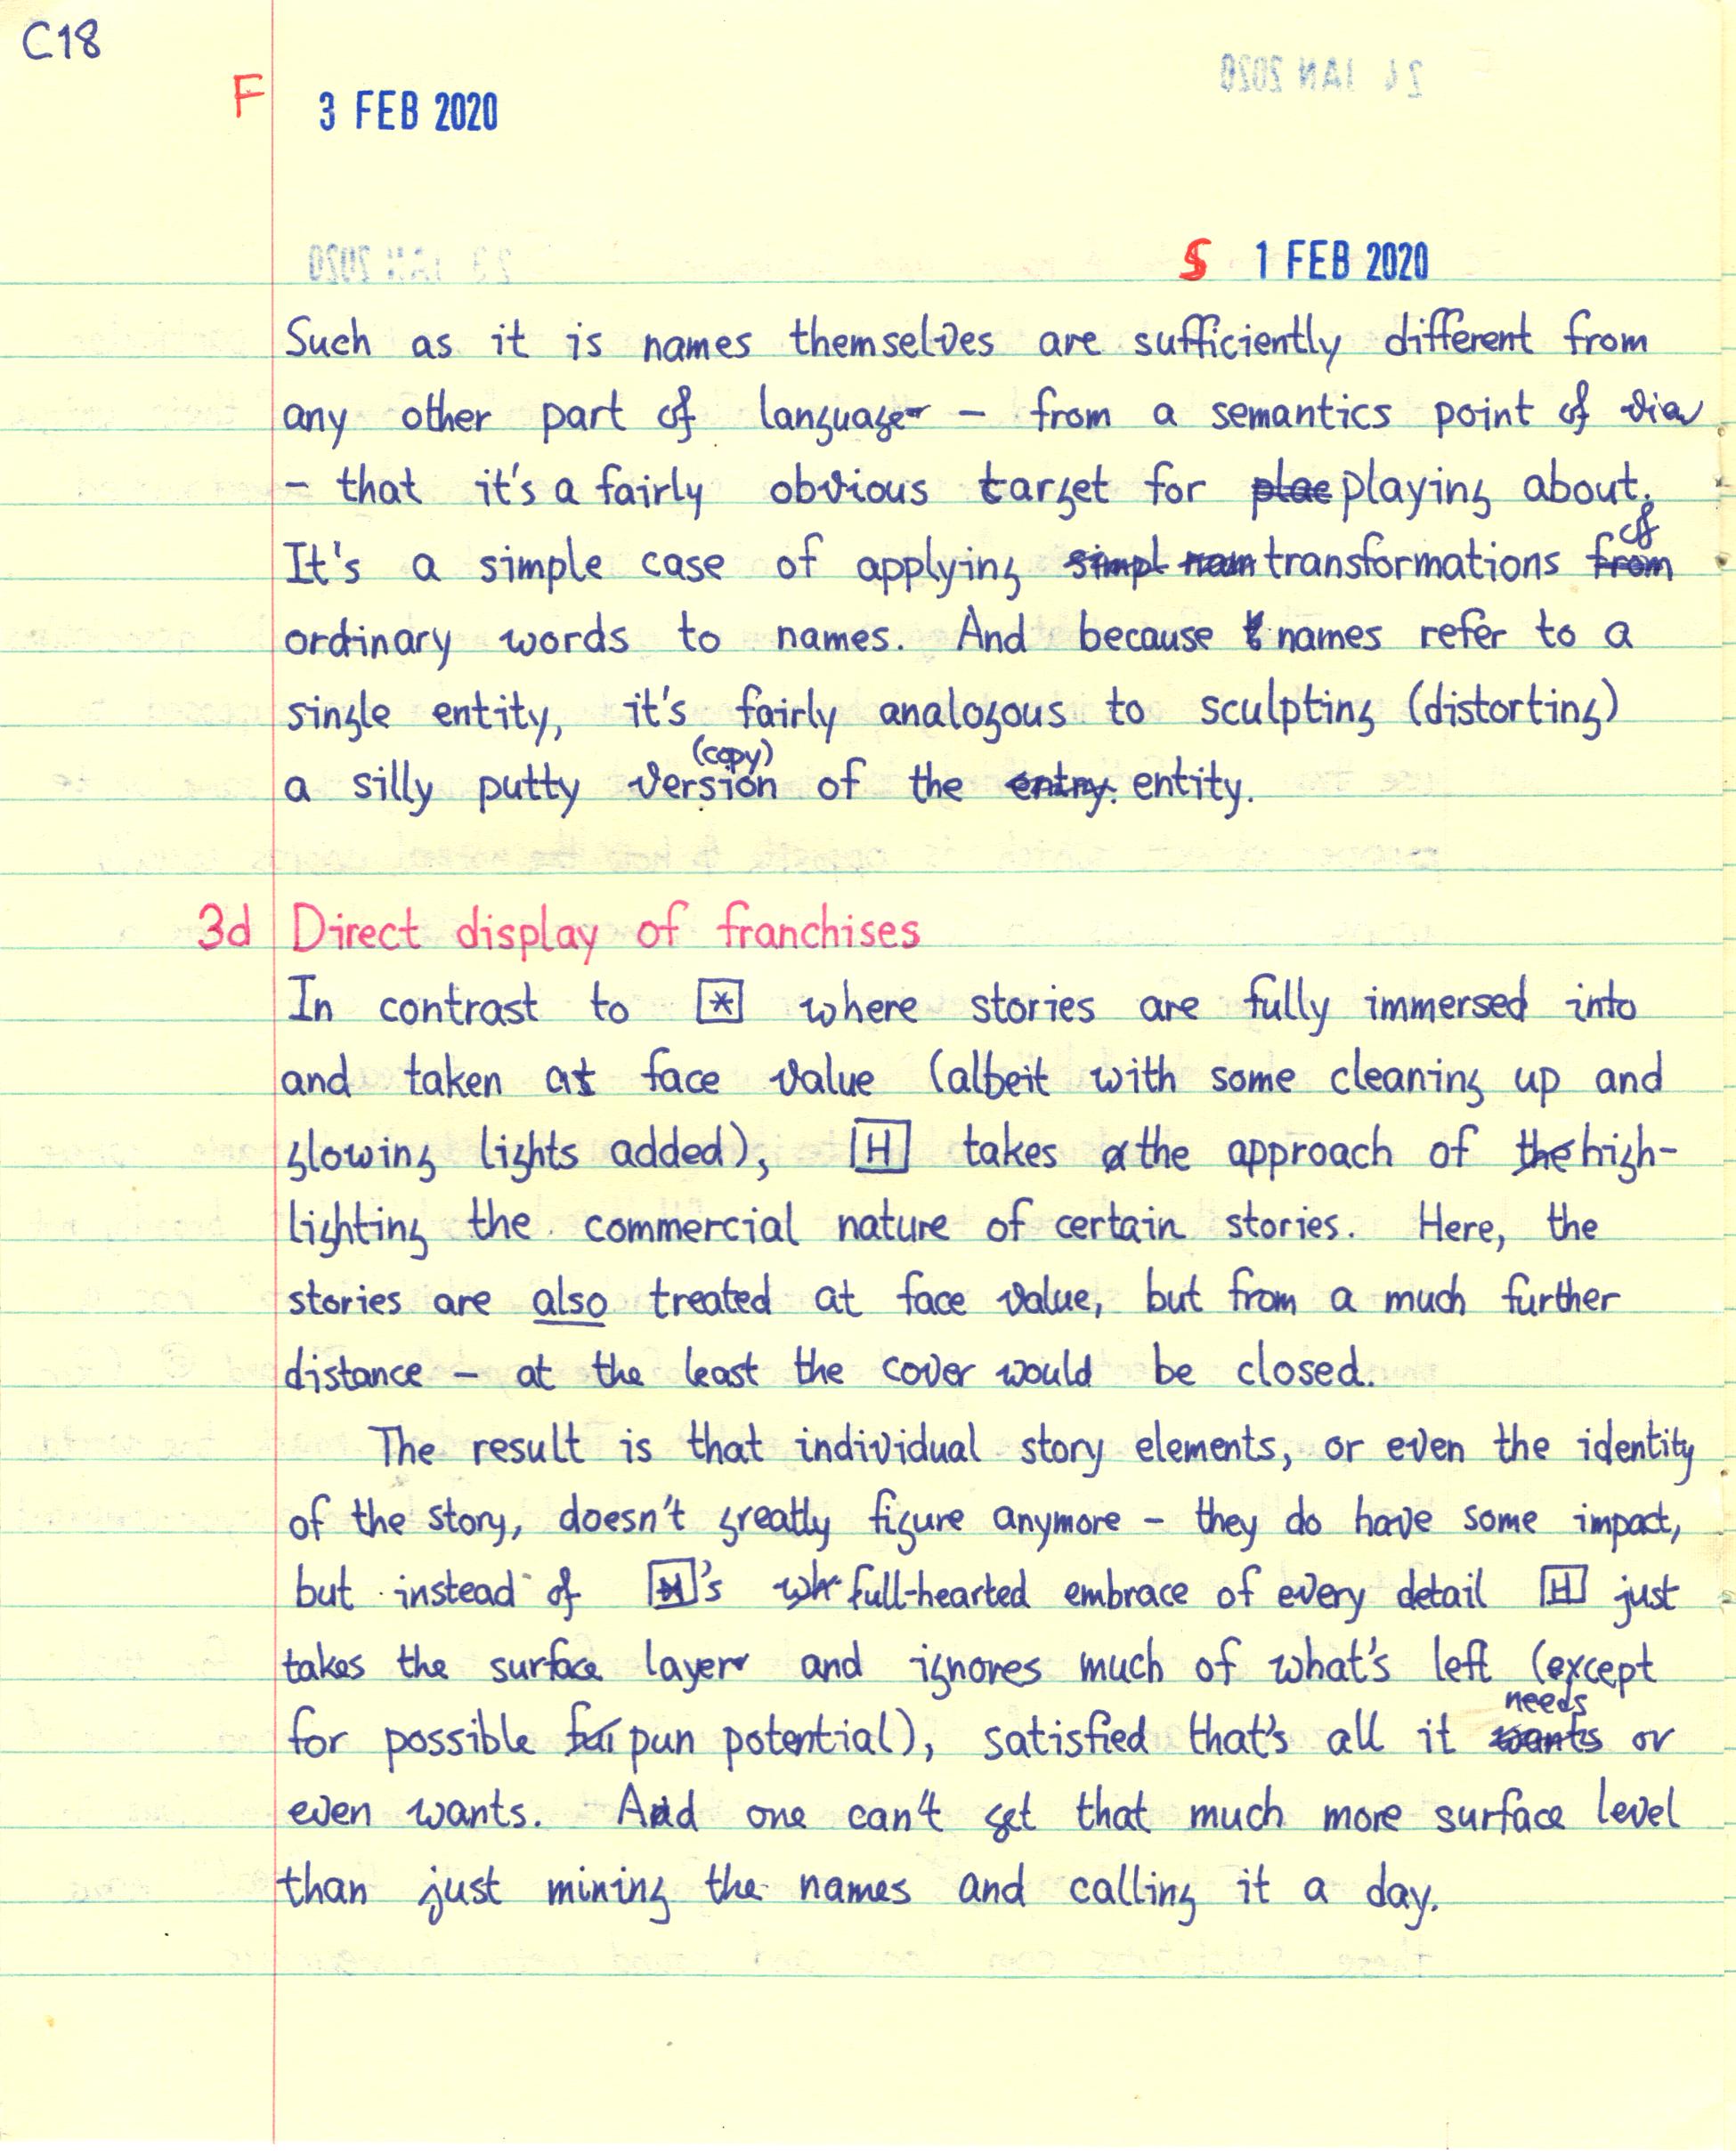 C18
F 3 FEB 2020
S 1 FEB 2020
Such as it is names themselves are sufficiently different from
any other part of language – from a semantics point of view
– that it's a fairly obvious target for plac playing about.
of
It's a simple case of applying simpl nam transformations from
ordinary words to names. And because names refer to a
single entity, it's fairly analogous to sculpting (distorting)
(copy)
a silly putty version of the entry. entity.
3d Direct display of franchises
In contrast to [*] where stories are fully immersed into
and taken at face value (albeit with some cleaning up and
glowing lights added), [H] takes the approach of the high-
lighting the commercial nature of certain stories. Here, the
stories are also treated at face value, but from a much further
distance – at the least the cover would be closed.
The result is that individual story elements, or even the identity
of the story, doesn't greatly figure anymore – they do have some impact,
but instead of [*]'s wh full-hearted embrace of every detail [H] just
takes the surface layer and ignores much of what's left (except
needs
for possible pun potential), satisfied that's all it wants or
even wants. And one can't get that much more surface level
than just mining the names and calling it a day.